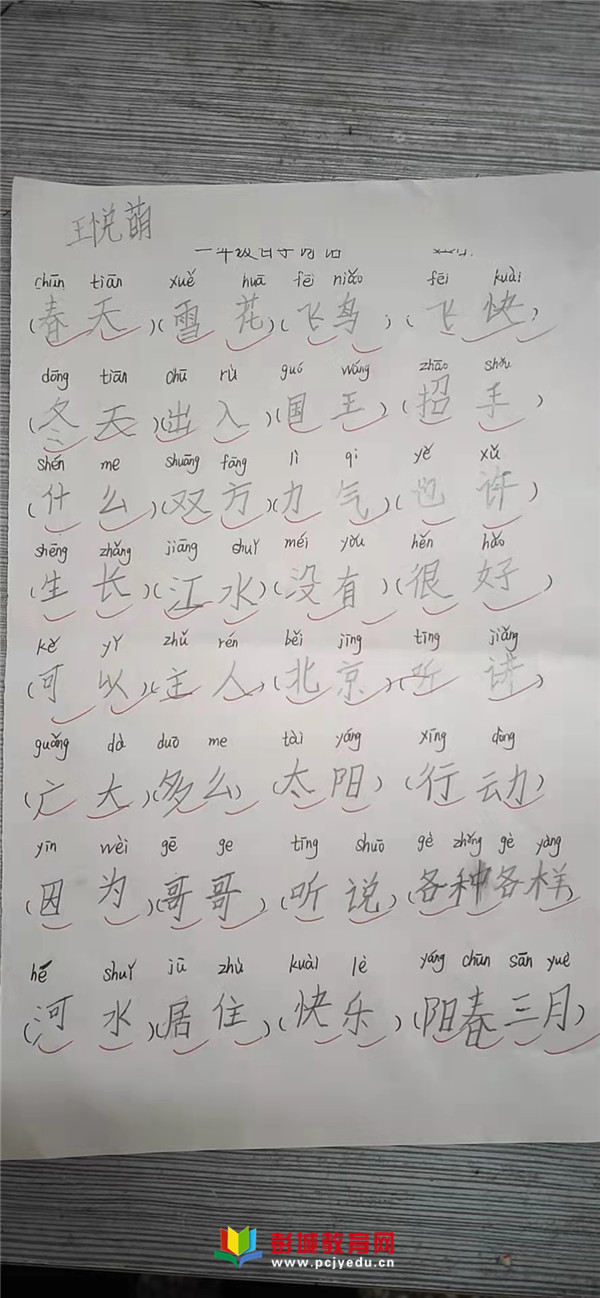 王悦萌
chūn tiān xuě huā fēi niǎo fēi kuài
(春天)(雪花)(飞鸟)(飞快)
dōng tiān chū rù guó wáng zhāo shǒu
(冬天)(出入)(国王)(招手)
shén me shuāng fāng lì qi yě xǔ
(什么)(双方)(力气)(也许)
shēng zhǎng jiāng shuǐ méi yǒu hěn hǎo
(生长)(江水)(没有)(很好)
kě yǐ zhǔ rén běi jīng tīng jiǎng
(可以)(主人)(北京)(听讲)
guǎng dà duō me tài yáng xíng dòng
(广大)(多么)(太阳)(行动)
yīn wèi gē ge tīng shuō gè zhǒng gè yàng
(因为)(哥哥)(听说)(各种各样)
hé shuǐ jū zhù kuài lè yáng chūn sān yuè
(河水)(居住)(快乐)(阳春三月)
彭城教育网
www.pcjyedu.cn